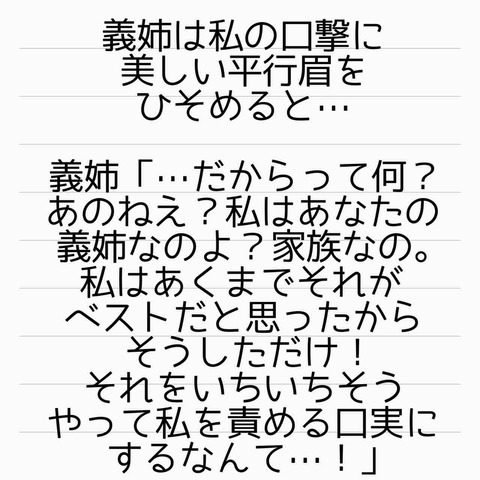 義姉は私の口撃に
美しい平行眉を
ひそめると…
義姉「…だからって何？
あのねえ？私はあなたの
義姉なのよ？家族なの。
私はあくまでそれが
ベストだと思ったから
そうしただけ！
それをいちいちそう
やって私を責める口実に
するなんて…！」